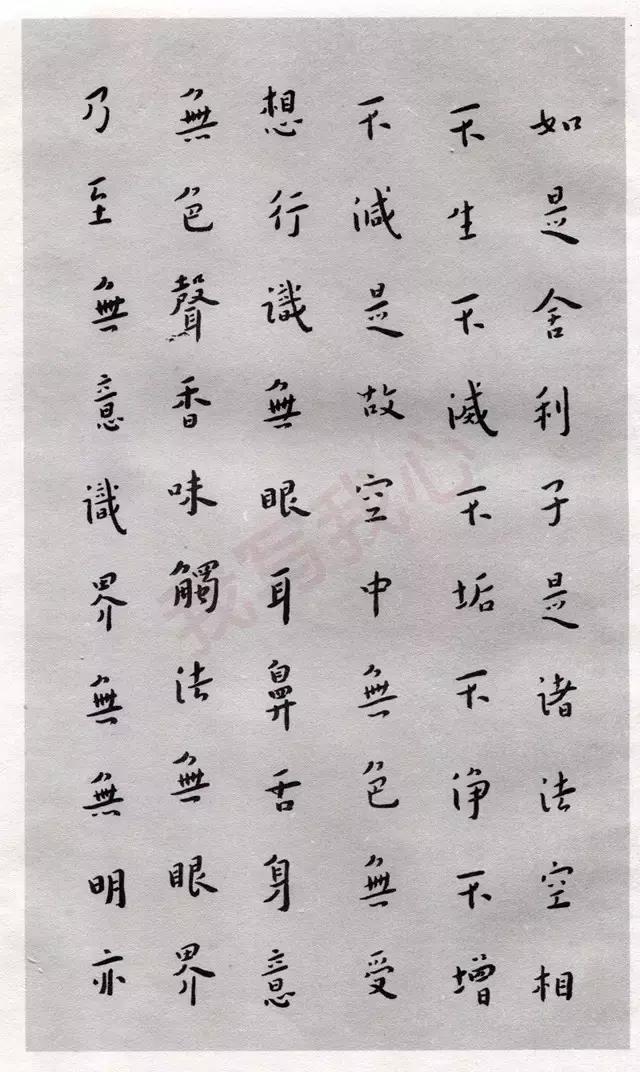 如是舍利子是諸法空相
不生不滅不垢不净不增
不減是故空中無色無受
想行識無眼耳鼻舌身意
無色聲香味觸法無眼界
乃至無意識界無無明亦
我写我心